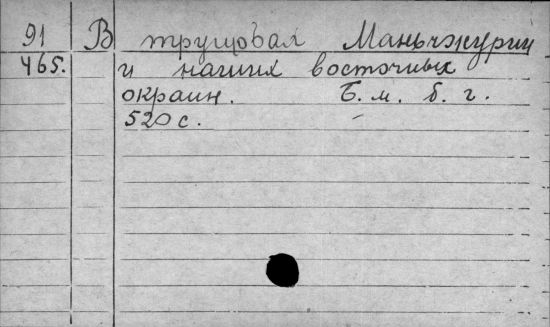 91 В трущобах Маньчжурии
465. и наших восточных
окраин. Б. м. б. г.
520 с.